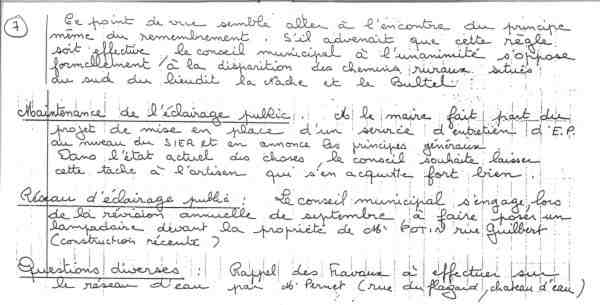 7
Ce point de vue semble aller à l'encontre du principe
même du remembrement. S'il advenait que cette règle
soit effective le conseil municipal à l'unanimité s'oppose
formellement à la disparition des chemins ruraux situés
au sud du lieudit la Nache et le Bultel.
Maintenance de l'éclairage public. M le maire fait part du
projet de mise en place d'un service d'entretien d'E.P.
au niveau du SIER et en annonce les principes généraux
Dans l'état actuel des choses le conseil souhaite laisser
cette tache à l'artisan qui s'en acquitte fort bien.
Réseau d'éclairage public : Le conseil municipal s'engage, lors
de la révision annuelle de septembre, à faire poser un
lampadaire devant la propriété de Mr POTIN rue Guilbert
(construction récente)
Questions diverses : Rappel des Travaux à effectuer sur
le réseau d'eau par Mr Pernet (rue du flégard, chateau d'eau)